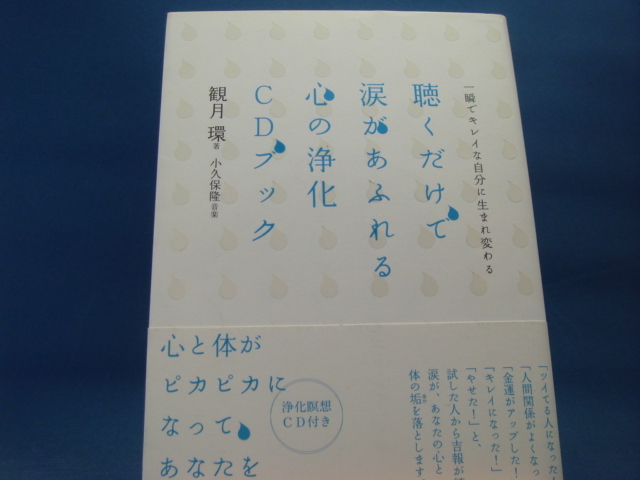 一瞬でキレイな自分に生まれ変わる
聴くだけで
涙があふれる
心の浄化
CDブック
観月 環 著
小久保隆 音楽
心と体が
ピカピカに
なって
あなたを
浄化瞑想
CD付き
「ツイてる人になった
「人間関係がよくなっ
「金運がアップした!
「キレイになった!」
「やせた!」と、
試した人から吉報が
涙が、あなたの心と
体の垢を落とします